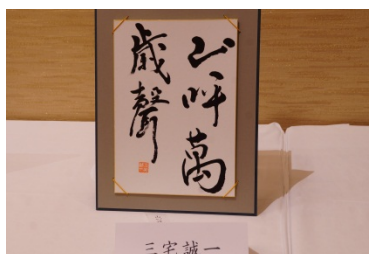 山呼萬
歳聲
三宅誠一